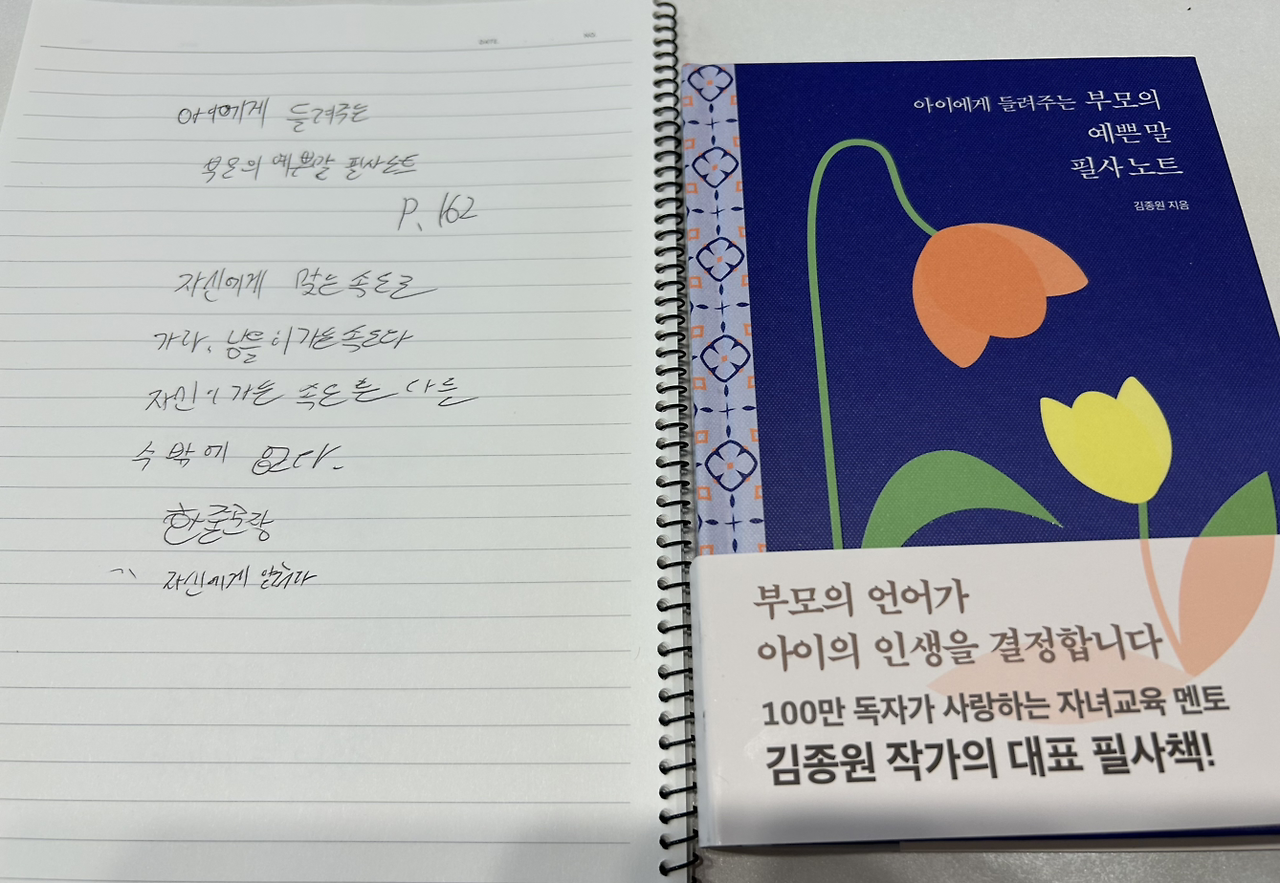 DATE
NO.
아이에게 들려주는
부모의 예쁜말 필사노트
P. 162
자신에게 맞는 속도로
가라. 남들이 가는 속도와
자신이 가는 속도는 다를
수 밖에 없다.
한줄문장
자신에게
아이에게 들려주는 부모의
예쁜 말
필사 노트
김종원 지음
부모의 언어가
아이의 인생을 결정합니다
100만 독자가 사랑하는 자녀교육 멘토
김종원 작가의 대표 필사책!